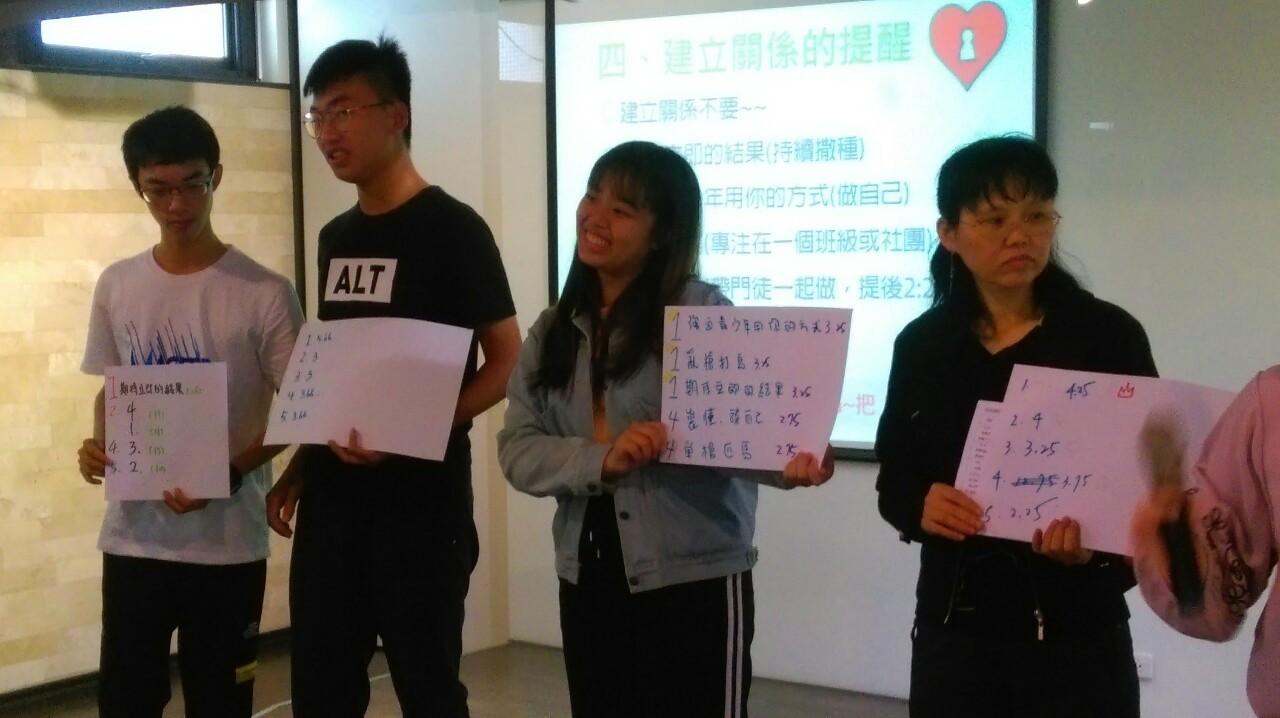 四、建立關係的提醒
建立關係不要~~
即的結果(持續撒種)
年用你的方式(做自己)
(專注在一個班級或社團)
門徒一起做，提後2:2
~把
ALT
1 期待立即的結果
2. 4
1.
4. 3.
5. 2.
1
2 3
3 3
4 3.66
5 3.66
1 強迫青少年用你的方式 3.25
1 亂槍打鳥 3.25
1 期待立即的結果 3.25
4 自己 2.75
4 單槍匹馬 2.75
1. 4.25
2. 4
3. 3.25
4. 3.75
5. 2.25